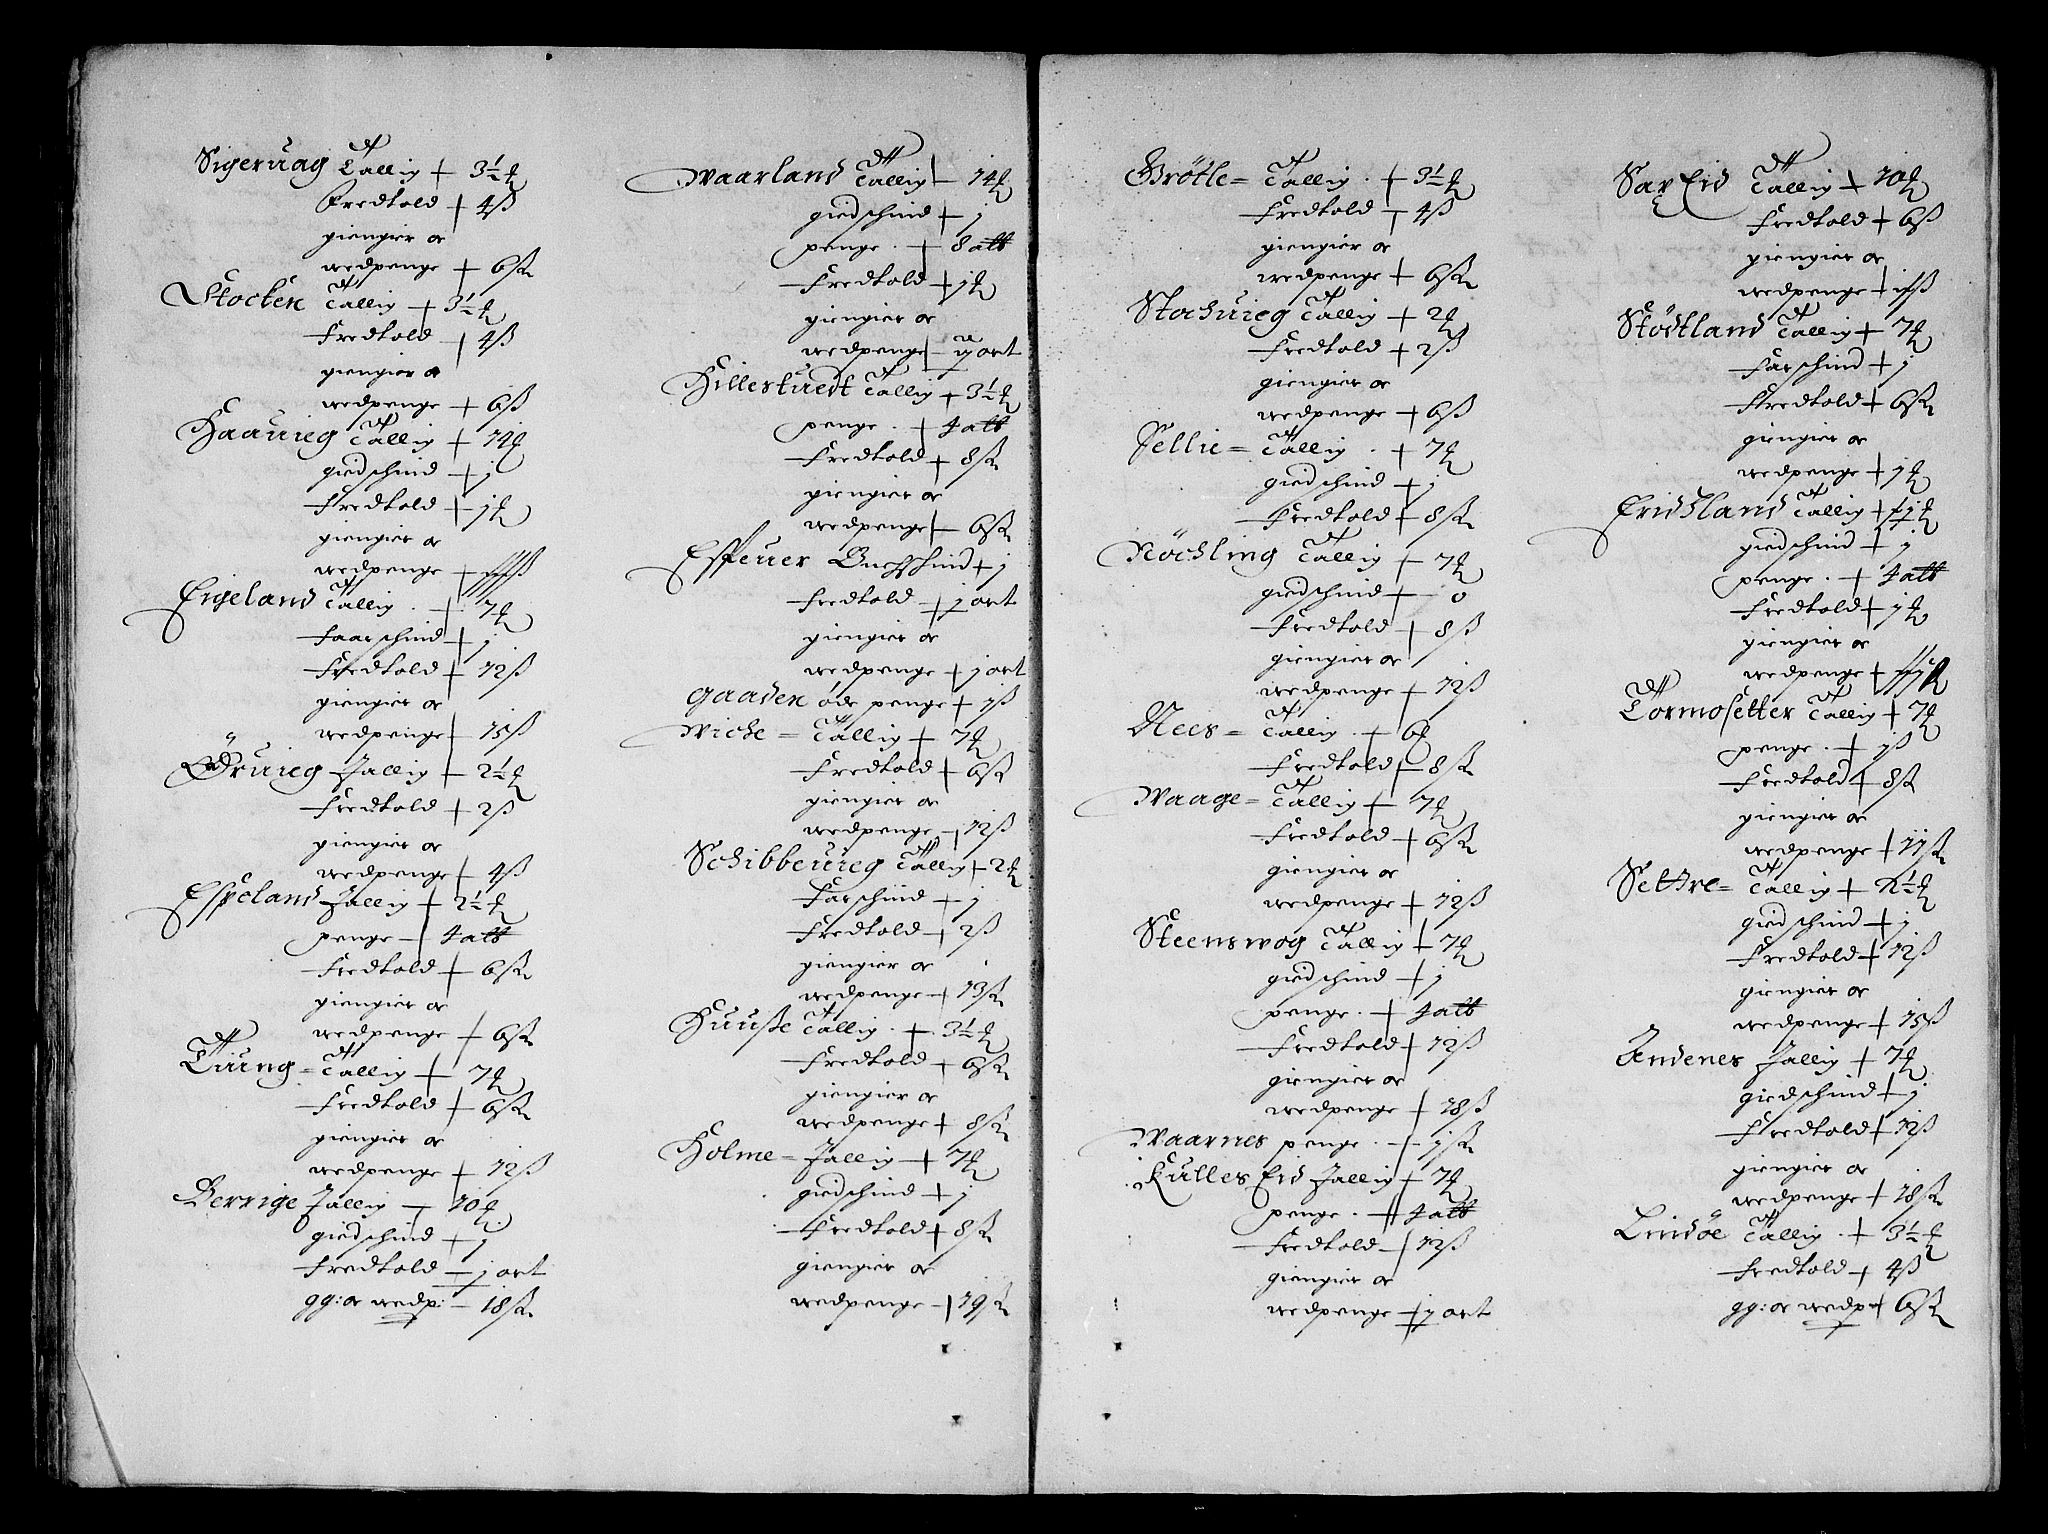 Sigeruag Tallig + 3½ ₰
Fredtold + 4 ß
giengier or
wedpenge + 6 ßr
Stocken Tallig + 3½ ₰
Fredtold + 4 ß
giengier or
wedpenge + 6 ß
Haauieg Tallig + 14 ₰
giedschind + j
Fredtold + j ₰
giengier or
wedpenge +
Eigeland Tallig . + 7 ₰
Faarschind + j
Fredtold + 12 ß
giengier or
wedpenge + 15 ß
Øruieg Tallig + 2½ ₰
Fredtold + 2 ß
giengier or
wedpenge + 4 ß
Espeland Tallig + 2½ ₰
penge + 4 alb
Fredtold + 6 ßr
giengier or
wedpenge + 6 ßr
Tiung = Tallig + 7 ₰
Fredtold + 6 ßr
giengier or
wedpenge + 12 ß
Berrige Tallig + 10 ₰
giedschind + j
Fredtold + j ort
gg: or wedp: - 18 ßr
Waarland Tallig + 14 ₰
giedschind + j
penge . + 8 alb
Fredtold + j ₰
giengier or
wedpenge + ij ort
Hillestuedt Tallig + 3½ ₰
penge . + 4 alb
Fredtold + 8 ßr
giengier or
wedpenge + 6 ßr
Espeuer Buchschind + j
Fredtold + j ort
giengier or
wedpenge + j ort
gaaden øde penge + j ß
Wiche = Tallig + 7 ₰
Fredtold + 6 ß
giengier or
wedpenge + 12 ß
Schibbeuieg Tallig + 2 ₰
Farschind + j
Fredtold + 2 ß
giengier or
wedpenge + 13 ßr
Huuße Tallig . + 3½ ₰
Fredtold + 6 ßr
giengier or
wedpenge + 8 ßr
Holme = Tallig + 7 ₰
giedschind + j
Fredtold + 8 ßr
giengier or
wedpenge + 19 ßr
Brötle = Tallig . + 3½ ₰
Fredtold + 4 ß
giengier or
wedpenge + 6 ßr
Stochuieg Tallig + 2 ₰
Fredtold + 2 ß
giengier or
wedpenge + 6 ß
Sellie = Tallig . + 7 ₰
giedschind + j
Fredtold + 8 ßr
Nöchling Tallig + 7 ₰
giedschind + 0
Fredtold + 8 ß
giengier or
wedpenge + 12 ß
Nees = Tallig . + 6 ₰
Fredtold + 8 ßr
Waage = Tallig + 7 ₰
Fredtold + 6 ßr
giengier or
wedpenge + 12 ß
Steenswog Tallig + 7 ₰
giedschind + j
penge . + 4 alb
Fredtold + 12 ß
giengier or
wedpenge + 18 ß
Waarnes penge . + j ßr
Kulles Eid Tallig + 7 ₰
penge . + 4 alb
Fredtold + 12 ß
giengier or
wedpenge + j ort
Sax Eid Tallig + 10 ₰
Fredtold + 6 ß
giengier or
wedpenge +
Stödtland Tallig + 7 ₰
Farschind + j
Fredtold + 6 ßr
giengier or
wedpenge + j ₰
Eridsland Tallig +
giedschind + j
penge . + 4 alb
Fredtold + j ₰
giengier or
wedpenge +
Tormosetter Tallig + 7 ₰
penge . + j ß
Fredtold + 8 ßr
giengier or
wedpenge + 11 ßr
Settre = Tallig +
giedschind + j
Fredtold + 12 ß
giengier or
wedpenge + 15 ß
Andenes Tallig + 7 ₰
giedschind + j
Fredtold + 12 ß
giengier or
wedpenge + 18 ßr
Lindöe Tallig . + 3½ ₰
Fredtold + 4 ß
gg: or wedp + 6 ßr